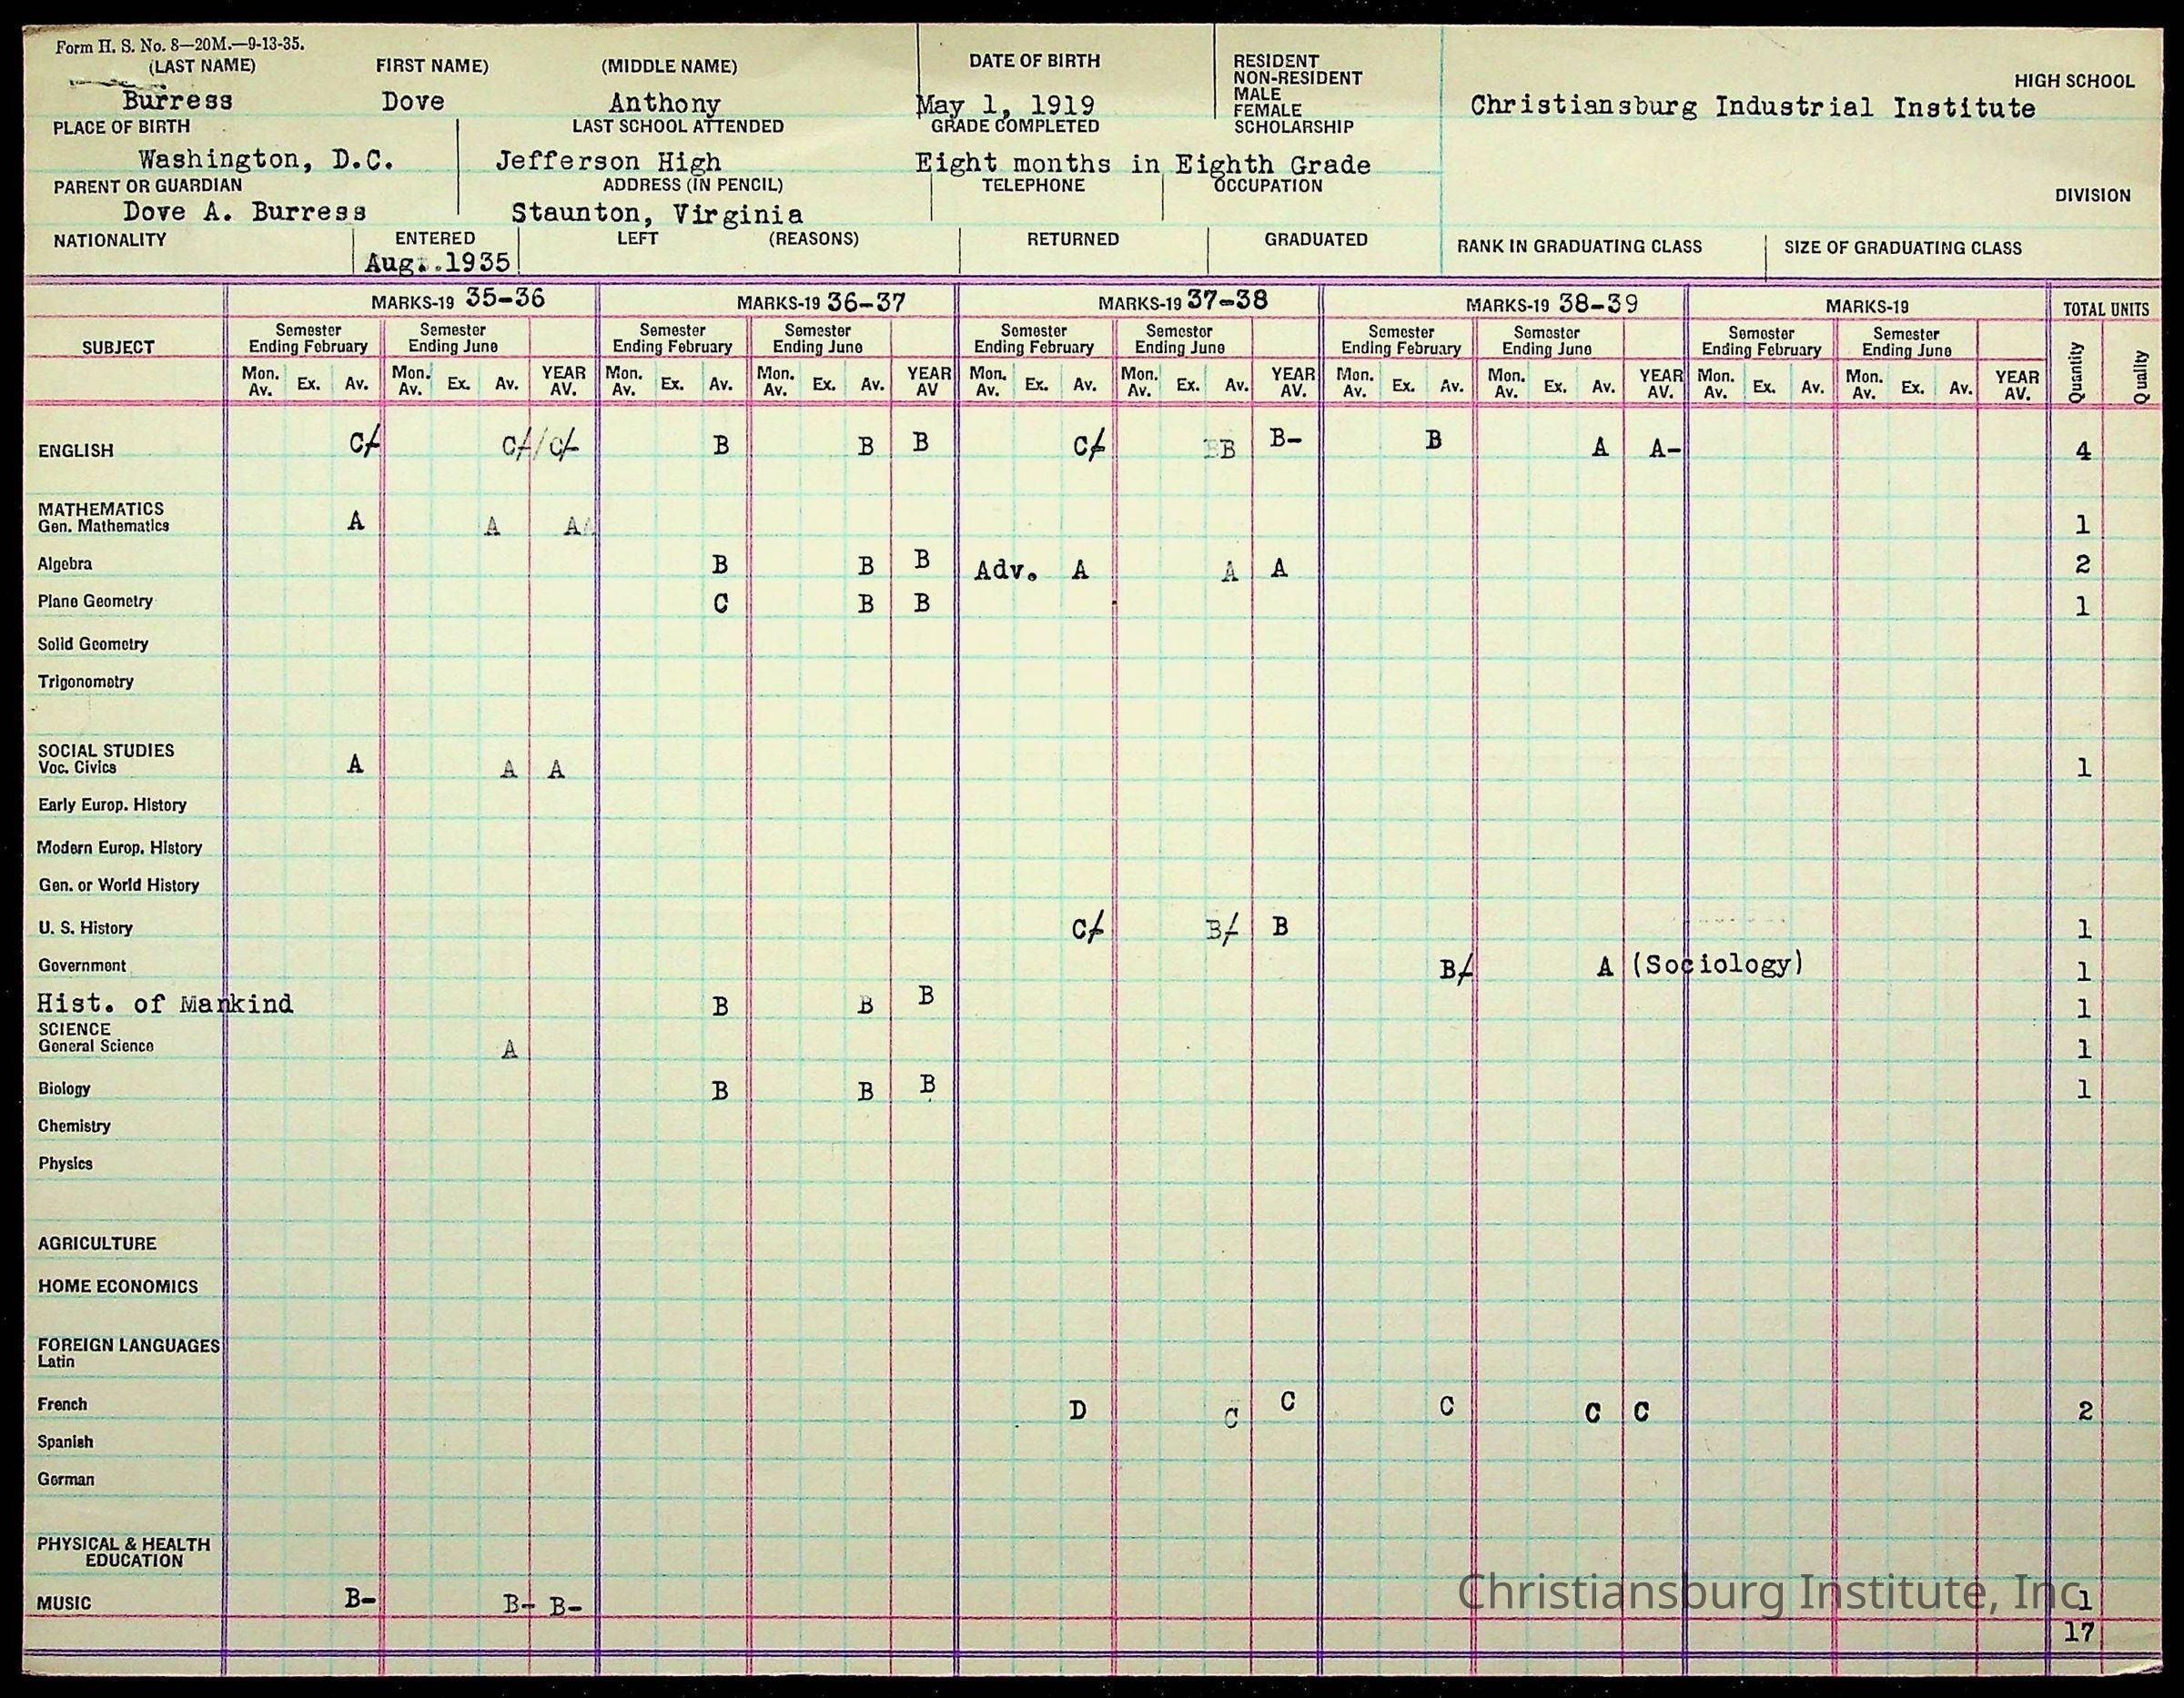 Form H. S. No. 8—20M.—9-13-35.
(LAST NAME) FIRST NAME) (MIDDLE NAME) DATE OF BIRTH RESIDENT
NON-RESIDENT
MALE
FEMALE
HIGH SCHOOL
Burress Dove Anthony May 1, 1919 Christiansburg Industrial Institute
PLACE OF BIRTH LAST SCHOOL ATTENDED GRADE COMPLETED SCHOLARSHIP
Washington, D.C. Jefferson High Eight months in Eighth Grade
PARENT OR GUARDIAN ADDRESS (IN PENCIL) TELEPHONE OCCUPATION DIVISION
Dove A. Burress Staunton, Virginia
NATIONALITY ENTERED LEFT (REASONS) RETURNED GRADUATED RANK IN GRADUATING CLASS SIZE OF GRADUATING CLASS
Aug..1935
MARKS-19 35-36 MARKS-19 36-37 MARKS-19 37-38 MARKS-19 38-39 MARKS-19 TOTAL UNITS
SUBJECT
Semester Semester Semester Semester Semester Semester Semester Semester Semester Semester
Ending February Ending June Ending February Ending June Ending February Ending June Ending February Ending June Ending February Ending June
Mon. Av. Ex. Av. Mon. Av. Ex. Av. YEAR AV. Mon. Av. Ex. Av. Mon. Av. Ex. Av. YEAR AV Mon. Av. Ex. Av. Mon. Av. Ex. Av. YEAR AV. Mon. Av. Ex. Av. Mon. Av. Ex. Av. YEAR AV. Mon. Av. Ex. Av. Mon. Av. Ex. Av. YEAR AV. Quantity Quality
ENGLISH C/- C/-/ C/- B B B C/- BB B- B A A- 4
MATHEMATICS
Gen. Mathematics A A AA 1
Algebra B B B Adv. A A A 2
Plane Geometry C B B 1
Solid Geometry
Trigonometry
SOCIAL STUDIES
Voc. Civics A A A 1
Early Europ. History
Modern Europ. History
Gen. or World History
U. S. History C/- B/- B 1
Government B/- A (Sociology) 1
Hist. of Mankind B B B 1
SCIENCE
General Science A 1
Biology B B B 1
Chemistry
Physics
AGRICULTURE
HOME ECONOMICS
FOREIGN LANGUAGES
Latin
French D C C C C C 2
Spanish
German
PHYSICAL & HEALTH
EDUCATION
MUSIC B- B- B- 1
17
Christiansburg Institute, Inc